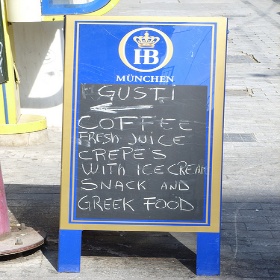 HB
MÜNCHEN
GUSTI
COFFEE
FRESH JUICE
CREPE'S
WITH ICE CREAM
SNACK AND
GREEK FOOD